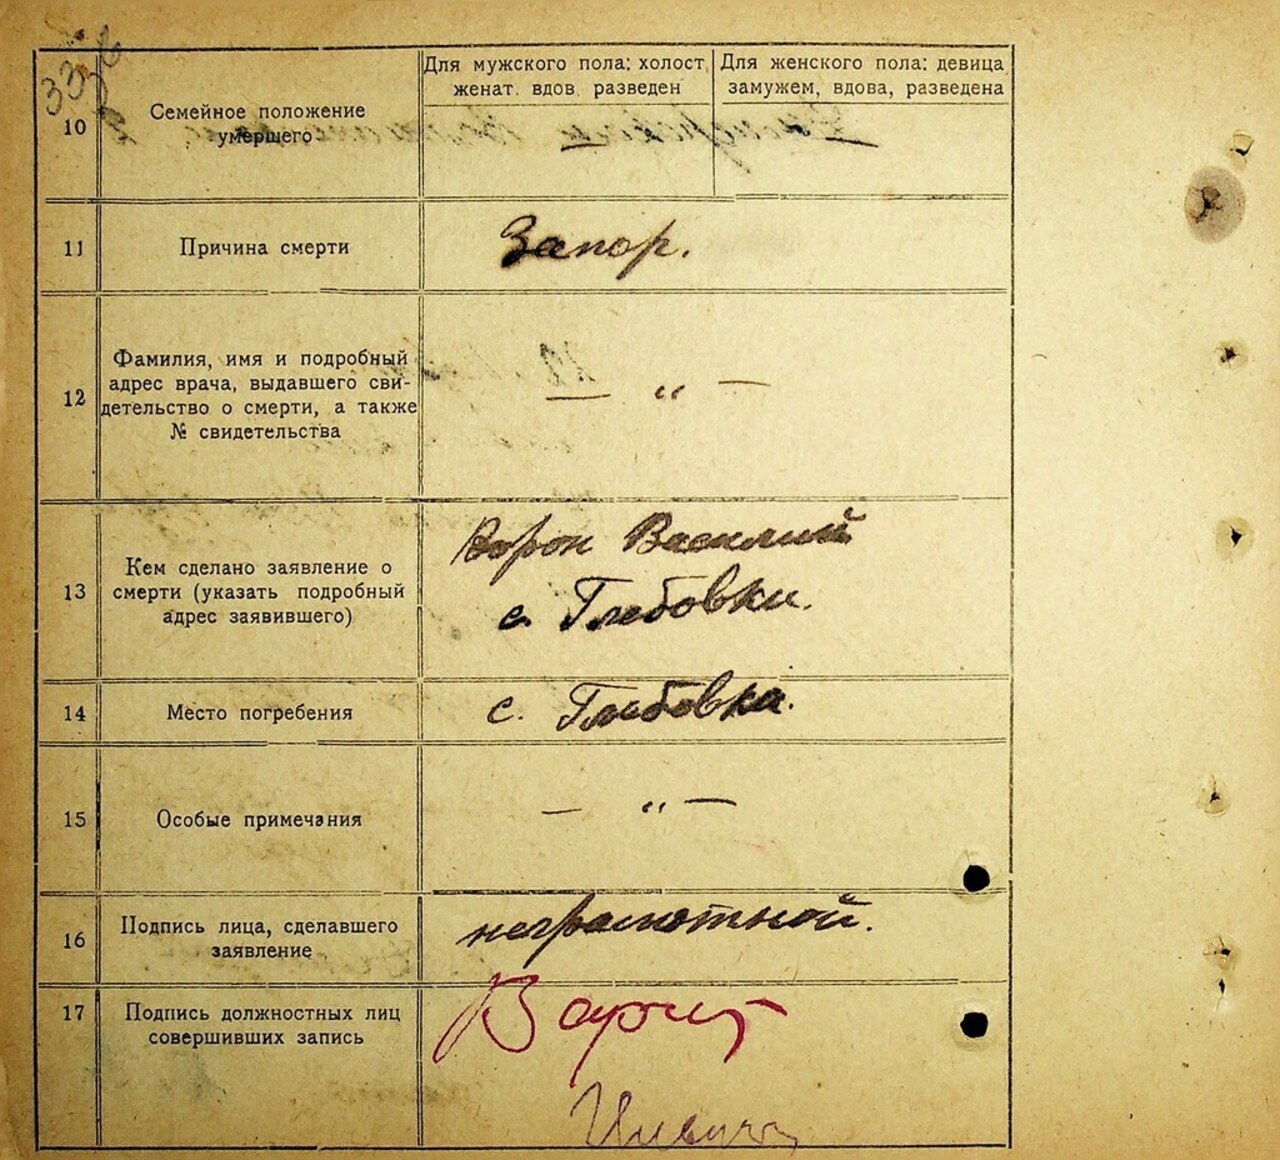 Для мужского пола: холост, женат. вдов. разведен
Для женского пола: девица, замужем, вдова, разведена
10
Семейное положение
умершего
11
Причина смерти
Запор.
12
Фамилия, имя и подробный
адрес врача, выдавшего сви-
детельство о смерти, а также
№ свидетельства
— " —
13
Кем сделано заявление о
смерти (указать подробный
адрес заявившего)
Ворон Василий
с. Глебовки.
14
Место погребения
с. Глебовка.
15
Особые примечания
— " —
16
Подпись лица, сделавшего
заявление
неграмотной.
17
Подпись должностных лиц
совершивших запись